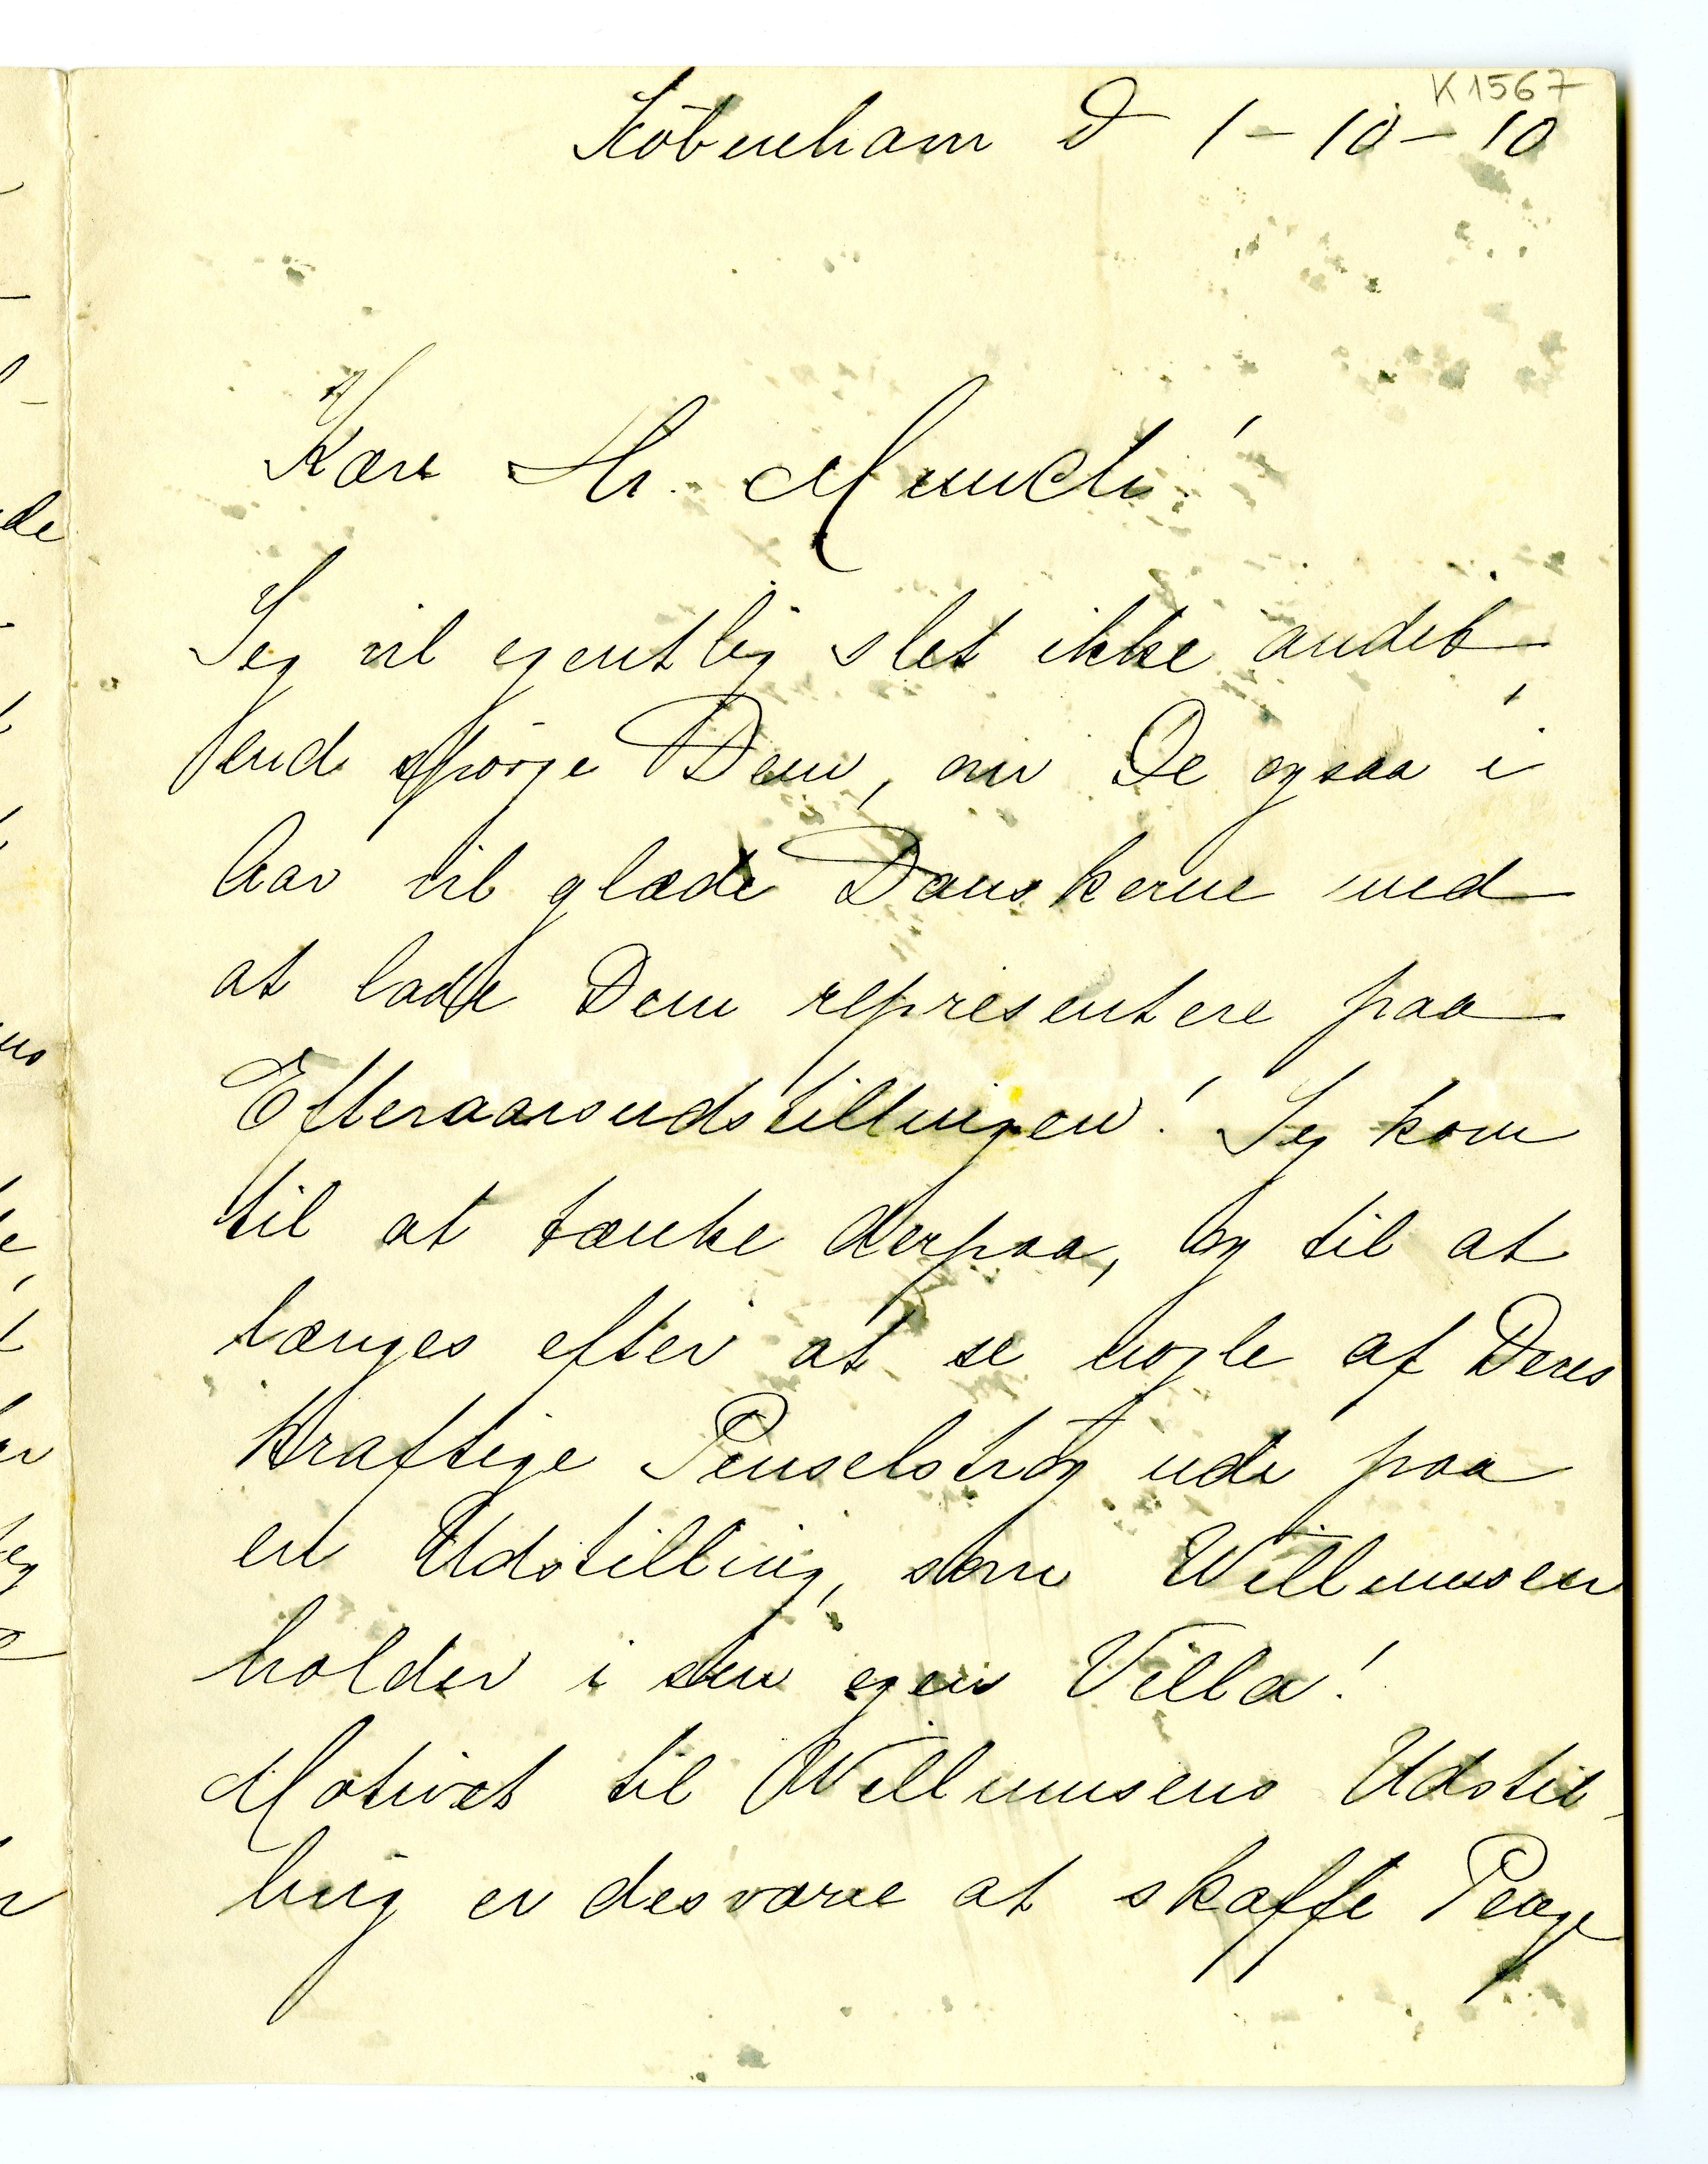 K 1567
Köbenham D 1-10-10
Kære Hr. Munch!
Jeg vil egentlig slet ikke andet
end spörge Dem, om De ogsaa i
Aar vil glæde Danskerne med
at lade Dem representere paa
Efteraarsudstillingen! Jeg kom
til at tænke derpaa, og til at
længes efter at se nogle af Deres
kraftige Penselströg ude paa
en Udstilling, som Willumsen
holder i sin egen Villa!
Motivet til Willumsens Udstil-
ling er desværre at skaffe Penge